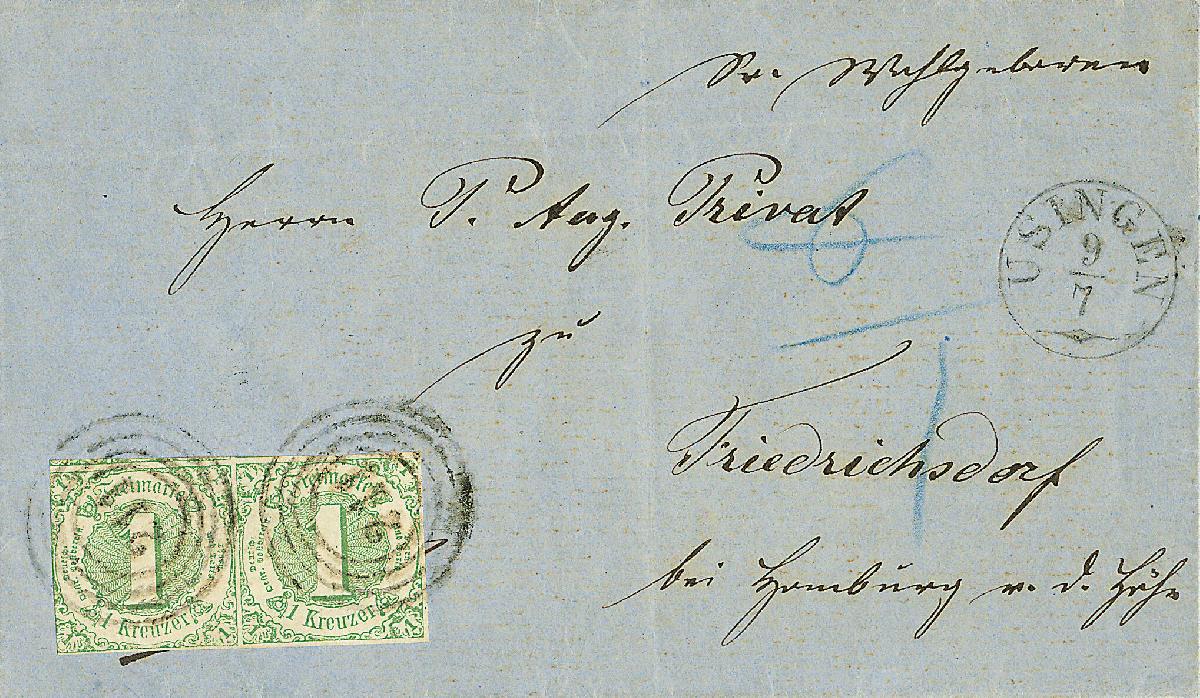 Sr. Wohlgeboren
Herrn P. Aug. Privat
zu
Friedrichsdorf
bei Homburg v. d. Höhe
USINGEN
9
7
Freimarke
1
1 Kreuzer
Freimarke
1
1 Kreuzer